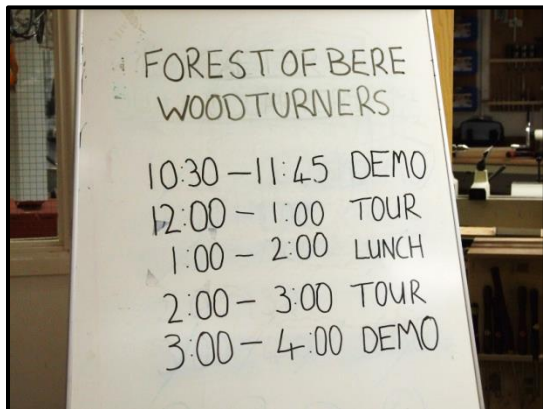 FOREST OF BERE
WOODTURNERS
10:30 – 11:45 DEMO
12:00 – 1:00 TOUR
1:00 – 2:00 LUNCH
2:00 – 3:00 TOUR
3:00 – 4:00 DEMO